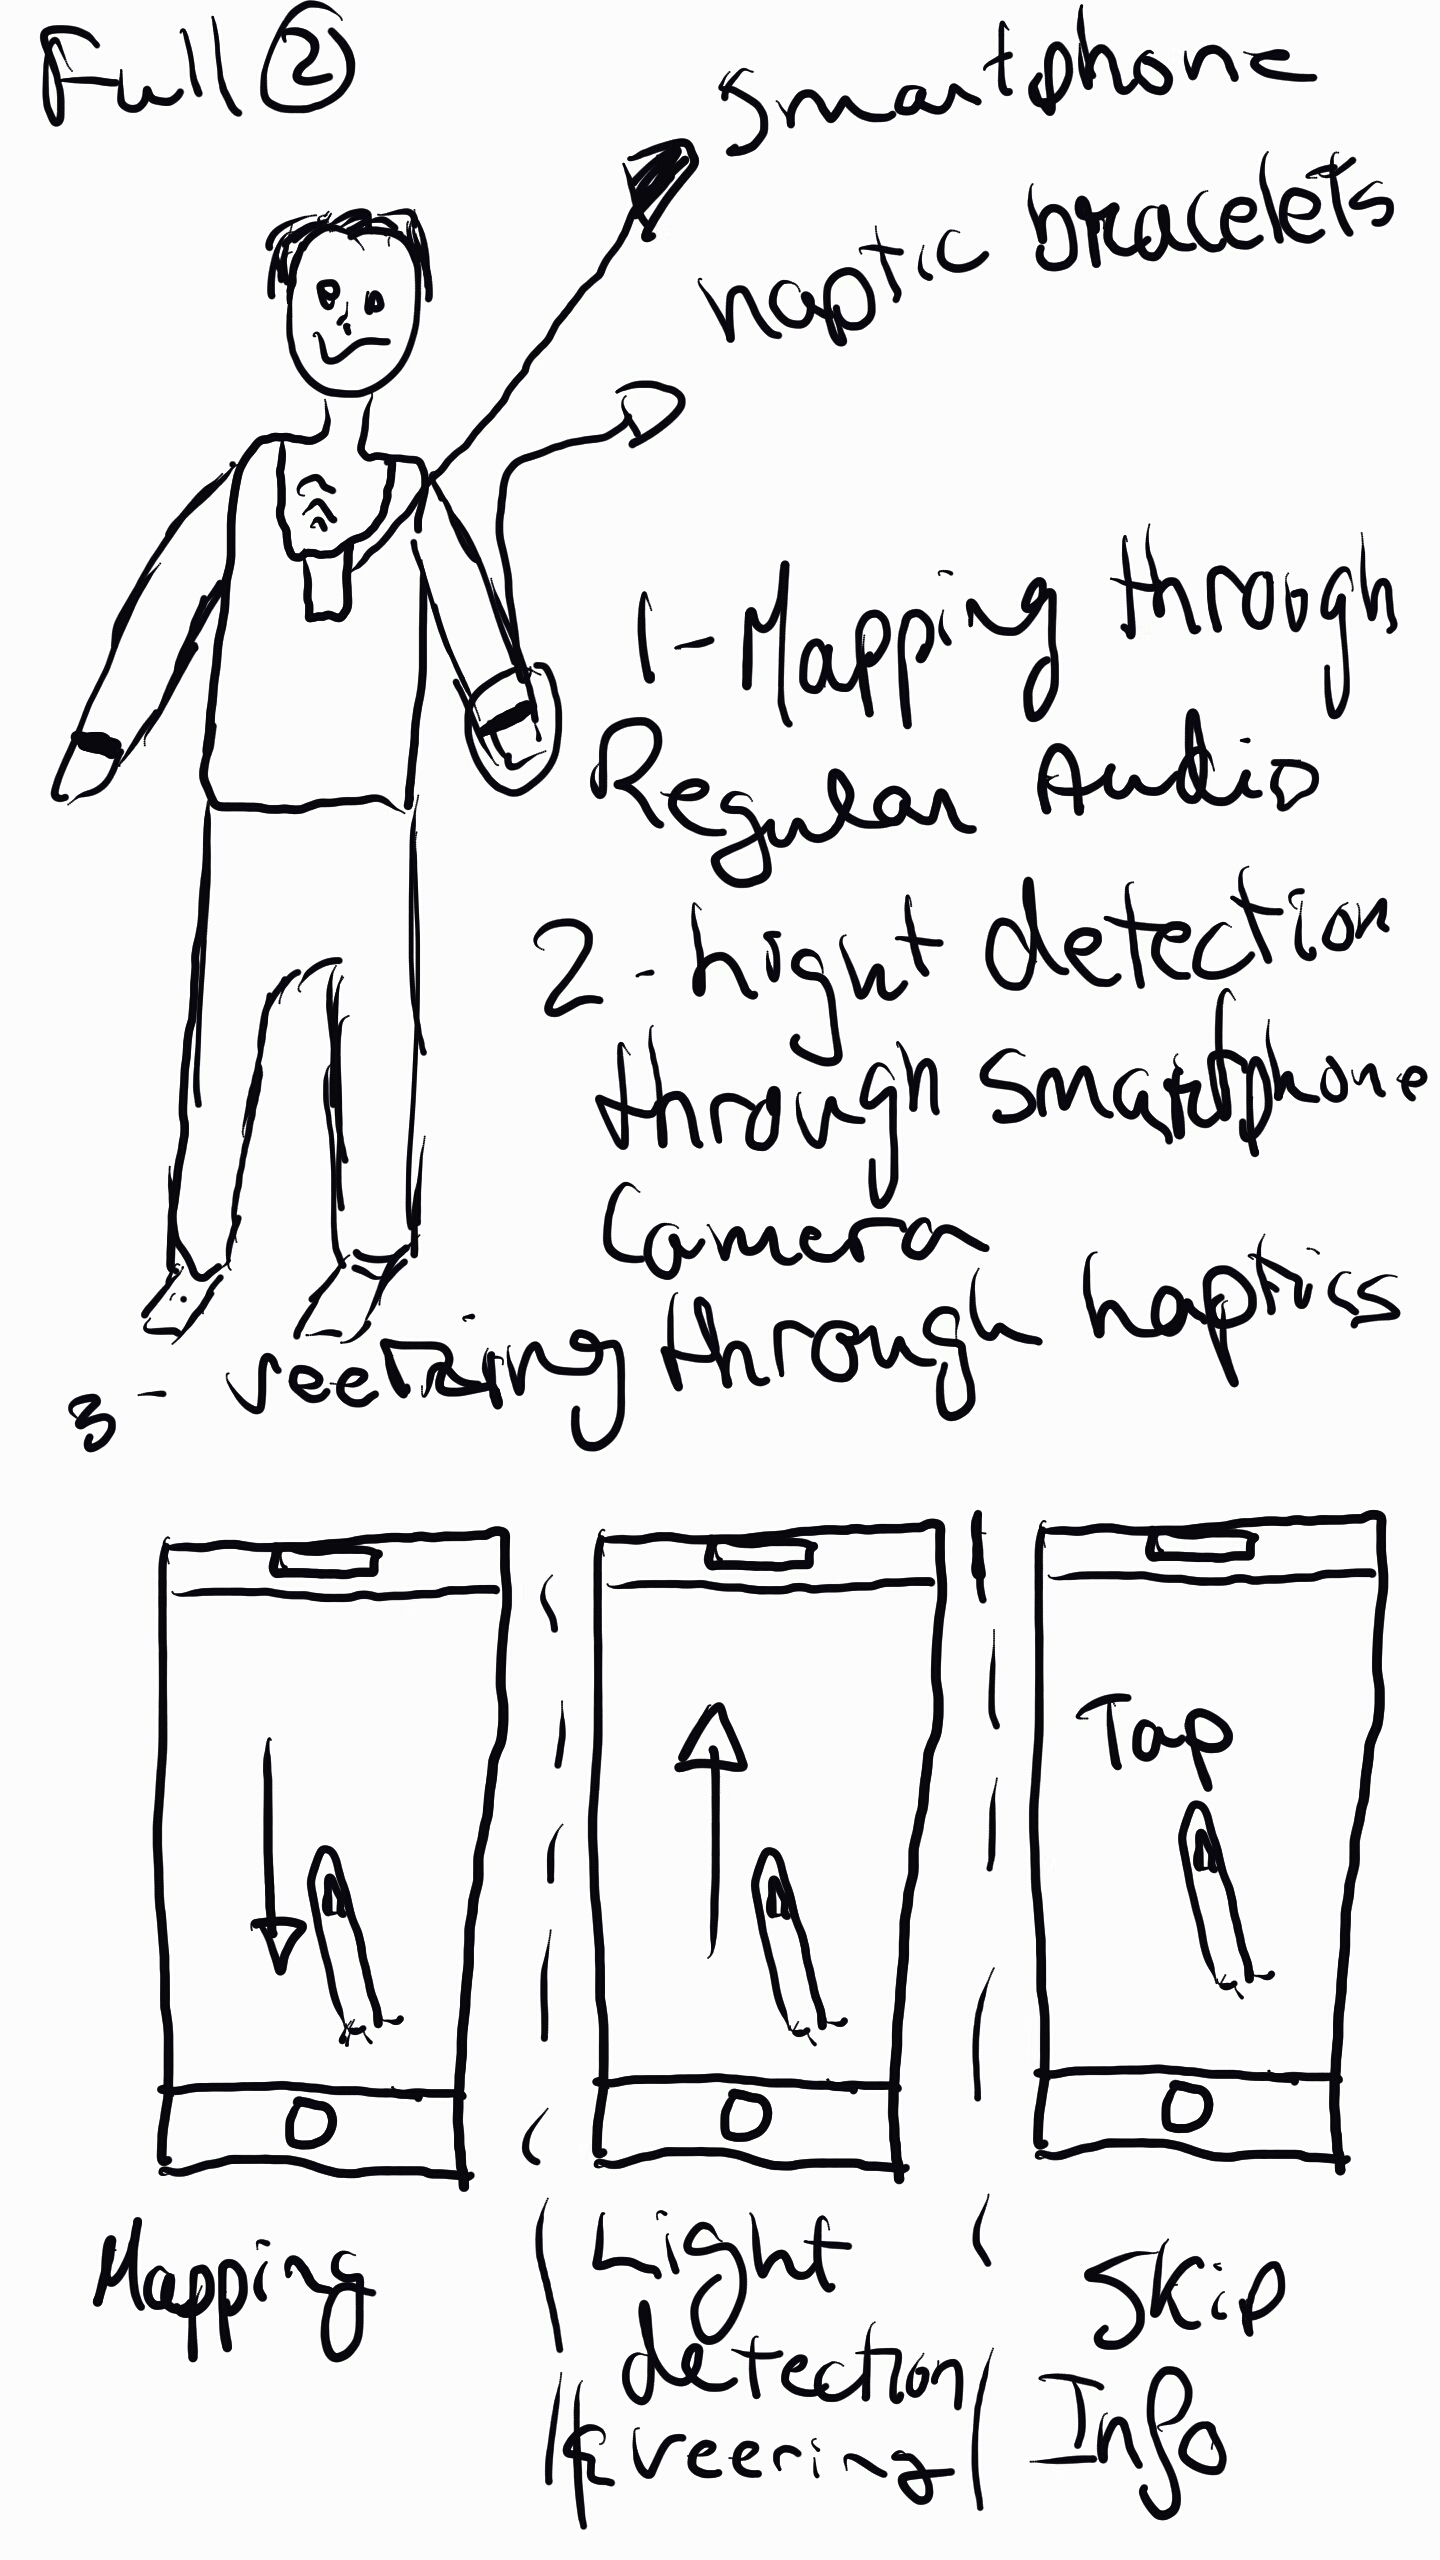 Full 2
Smartphone
haptic bracelets
1-Mapping through
Regular Audio
2-Light detection
through smartphone
Camera
3-veering through haptics
Tap
Mapping
Light
detection
& veering
Skip
Info